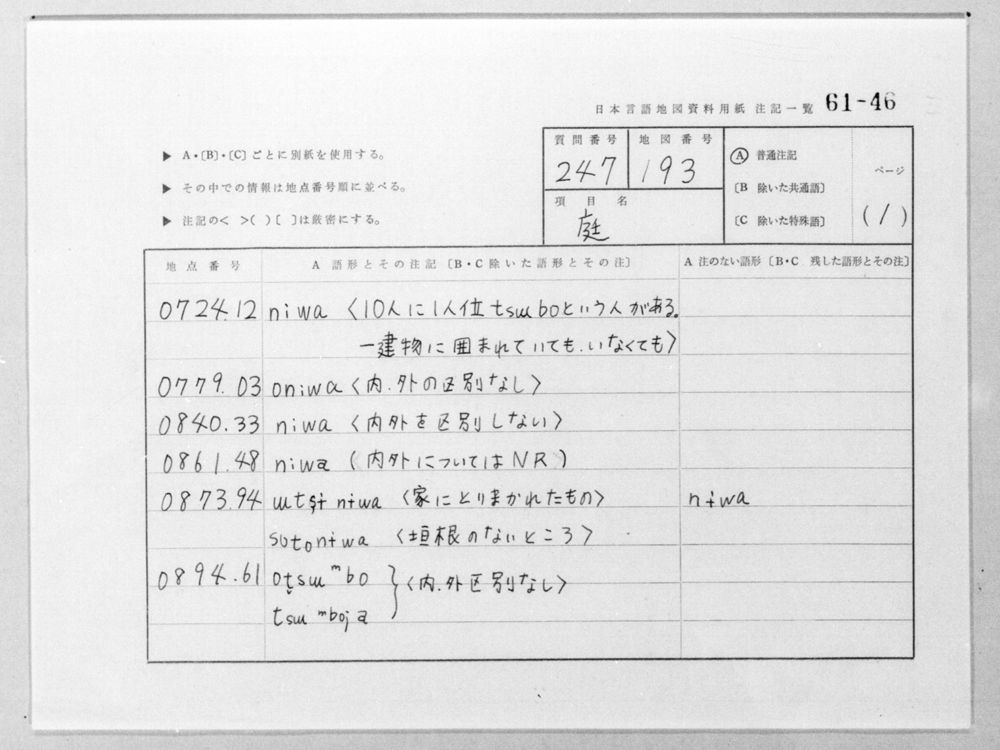 日本言語地図資料用紙 注記一覧 61-46
▶ A・〔B〕・〔C〕ごとに別紙を使用する。
▶ その中での情報は地点番号順に並べる。
▶ 注記の< >( )〔 〕は厳密にする。
質問番号 247
地図番号 193
項目名 庭
Ⓐ 普通注記
〔B 除いた共通語〕
〔C 除いた特殊語〕
ページ (1)
地点番号 A 語形とその注記〔B・C除いた語形とその注〕 A 注のない語形〔B・C 残した語形とその注〕
0724.12 niwa 〈10人に1人位tsɯboという人がある。
一建物に囲まれていても.いなくても〉
0779.03 oniwa〈内.外の区別なし〉
0840.33 niwa 〈内外を区別しない〉
0861.48 niwa (内外についてはNR)
0873.94 ɯtʂɨ nɨwa 〈家にとりまかれたもの〉 nɨwa
sotonɨwa 〈垣根のないところ〉
0894.61 ot̬sɯᵐbo }〈内.外区別なし〉
tsɯᵐboja